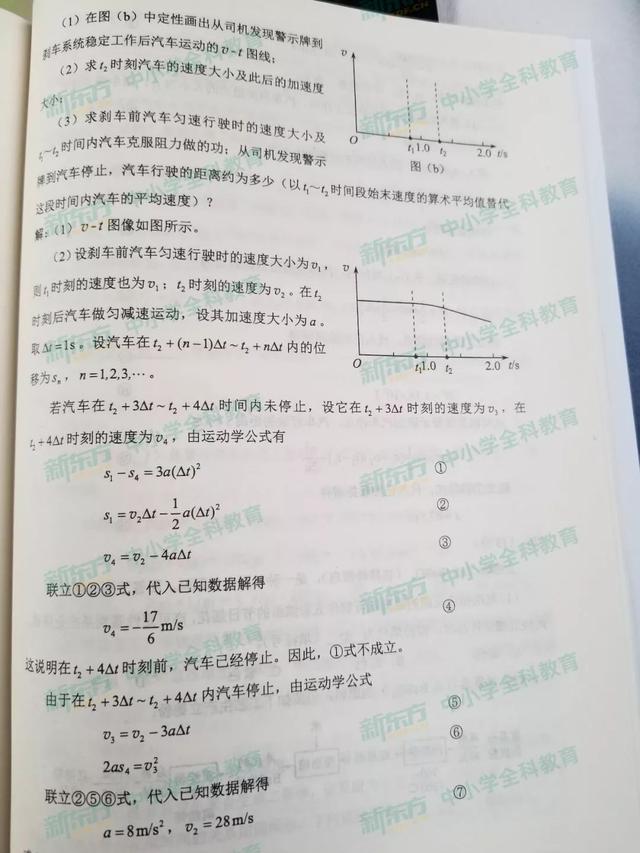 (1) 在图 (b) 中定性画出从司机发现警示牌到
刹车系统稳定工作后汽车运动的 v-t 图线；
(2) 求 t₂ 时刻汽车的速度大小及此后的加速度
大小；
(3) 求刹车前汽车匀速行驶时的速度大小及
t₁~t₂ 时间内汽车克服阻力做的功；从司机发现警示
牌到汽车停止，汽车行驶的距离约为多少（以 t₁~t₂ 时间段始末速度的算术平均值替代
这段时间内汽车的平均速度）？
v
O
t₁ 1.0 t₂ 2.0 t/s
图 (b)
解：(1) v-t 图像如图所示。
(2) 设刹车前汽车匀速行驶时的速度大小为 v₁，
则 t₁ 时刻的速度也为 v₁；t₂ 时刻的速度为 v₂。在 t₂
时刻后汽车做匀减速运动，设其加速度大小为 a。
取 Δt=1s。设汽车在 t₂+(n-1)Δt~t₂+nΔt 内的位
移为 sₙ，n=1,2,3,…。
v
O
t₁ 1.0 t₂ 2.0 t/s
若汽车在 t₂+3Δt~t₂+4Δt 时间内未停止，设它在 t₂+3Δt 时刻的速度为 v₃，在
t₂+4Δt 时刻的速度为 v₄，由运动学公式有
s₁-s₄=3a(Δt)² ①
s₁=v₂Δt-1/2 a(Δt)² ②
v₄=v₂-4aΔt ③
联立①②③式，代入已知数据解得
v₄=-17/6 m/s ④
这说明在 t₂+4Δt 时刻前，汽车已经停止。因此，①式不成立。
由于在 t₂+3Δt~t₂+4Δt 内汽车停止，由运动学公式
v₃=v₂-3aΔt ⑤
2as₄=v₃² ⑥
联立②⑤⑥式，代入已知数据解得
a=8m/s²，v₂=28m/s ⑦
新东方 中小学全科教育